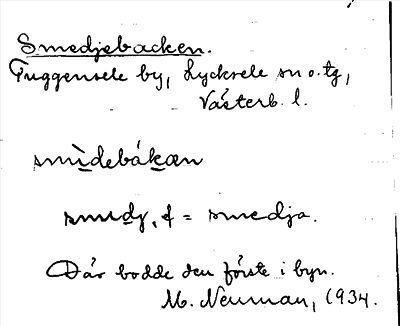 Smedjebacken.
Tuggensele by, Lycksele sn o. tg,
Västerb. l.
smìdebákæn
smɩdʒ, f = smedja.
Där bodde den förste i byn.
M. Neuman, 1934.